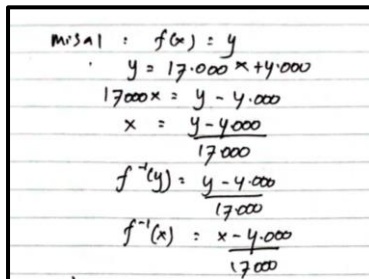 misal : f(x) = y
y = 17.000 x + 4.000
17000x = y - 4.000
x = y - 4000
17000
f⁻¹(y) = y - 4.000
17.000
f⁻¹(x) = x - 4.000
17000